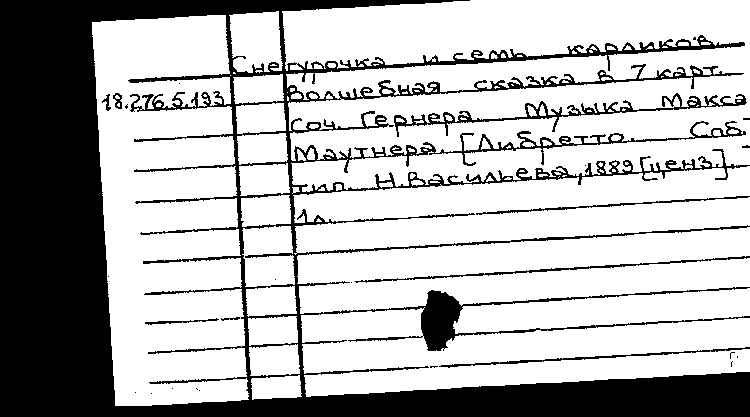 Снегурочка и семь карликов.
18.276.5.193 Волшебная сказка в 7 карт.
Соч. Гернера. Музыка Макса
Маутнера. [Либретто. Спб.
тип. Н.Васильева, 1889 [ценз.].
1л.